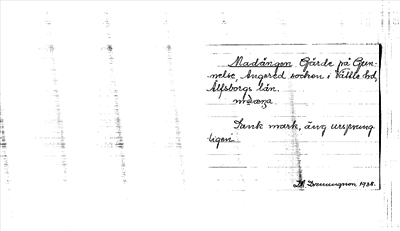 Madängen Gärde på Gun-
nelse, Angered socken i Vättle hd,
Älfsborgs län.
Sank mark, äng ursprung
ligen
1938.